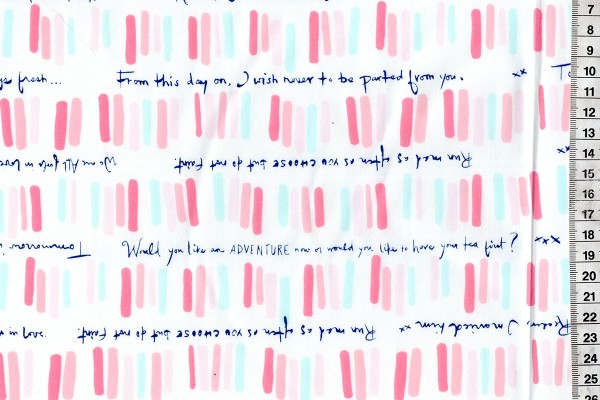 fresh... From this day on, I wish never to be parted from you. xx
xx Run mad as often as you CHOOSE but do not faint. We are ALL fools in love
Tomorrow Would you like an ADVENTURE now or would you like to have your tea first? xxx
Reader, I married him xx Run mad as often as you CHOOSE but do not faint. in love
7
8
9
10
11
12
13
14
15
16
17
18
19
20
21
22
23
24
25
26